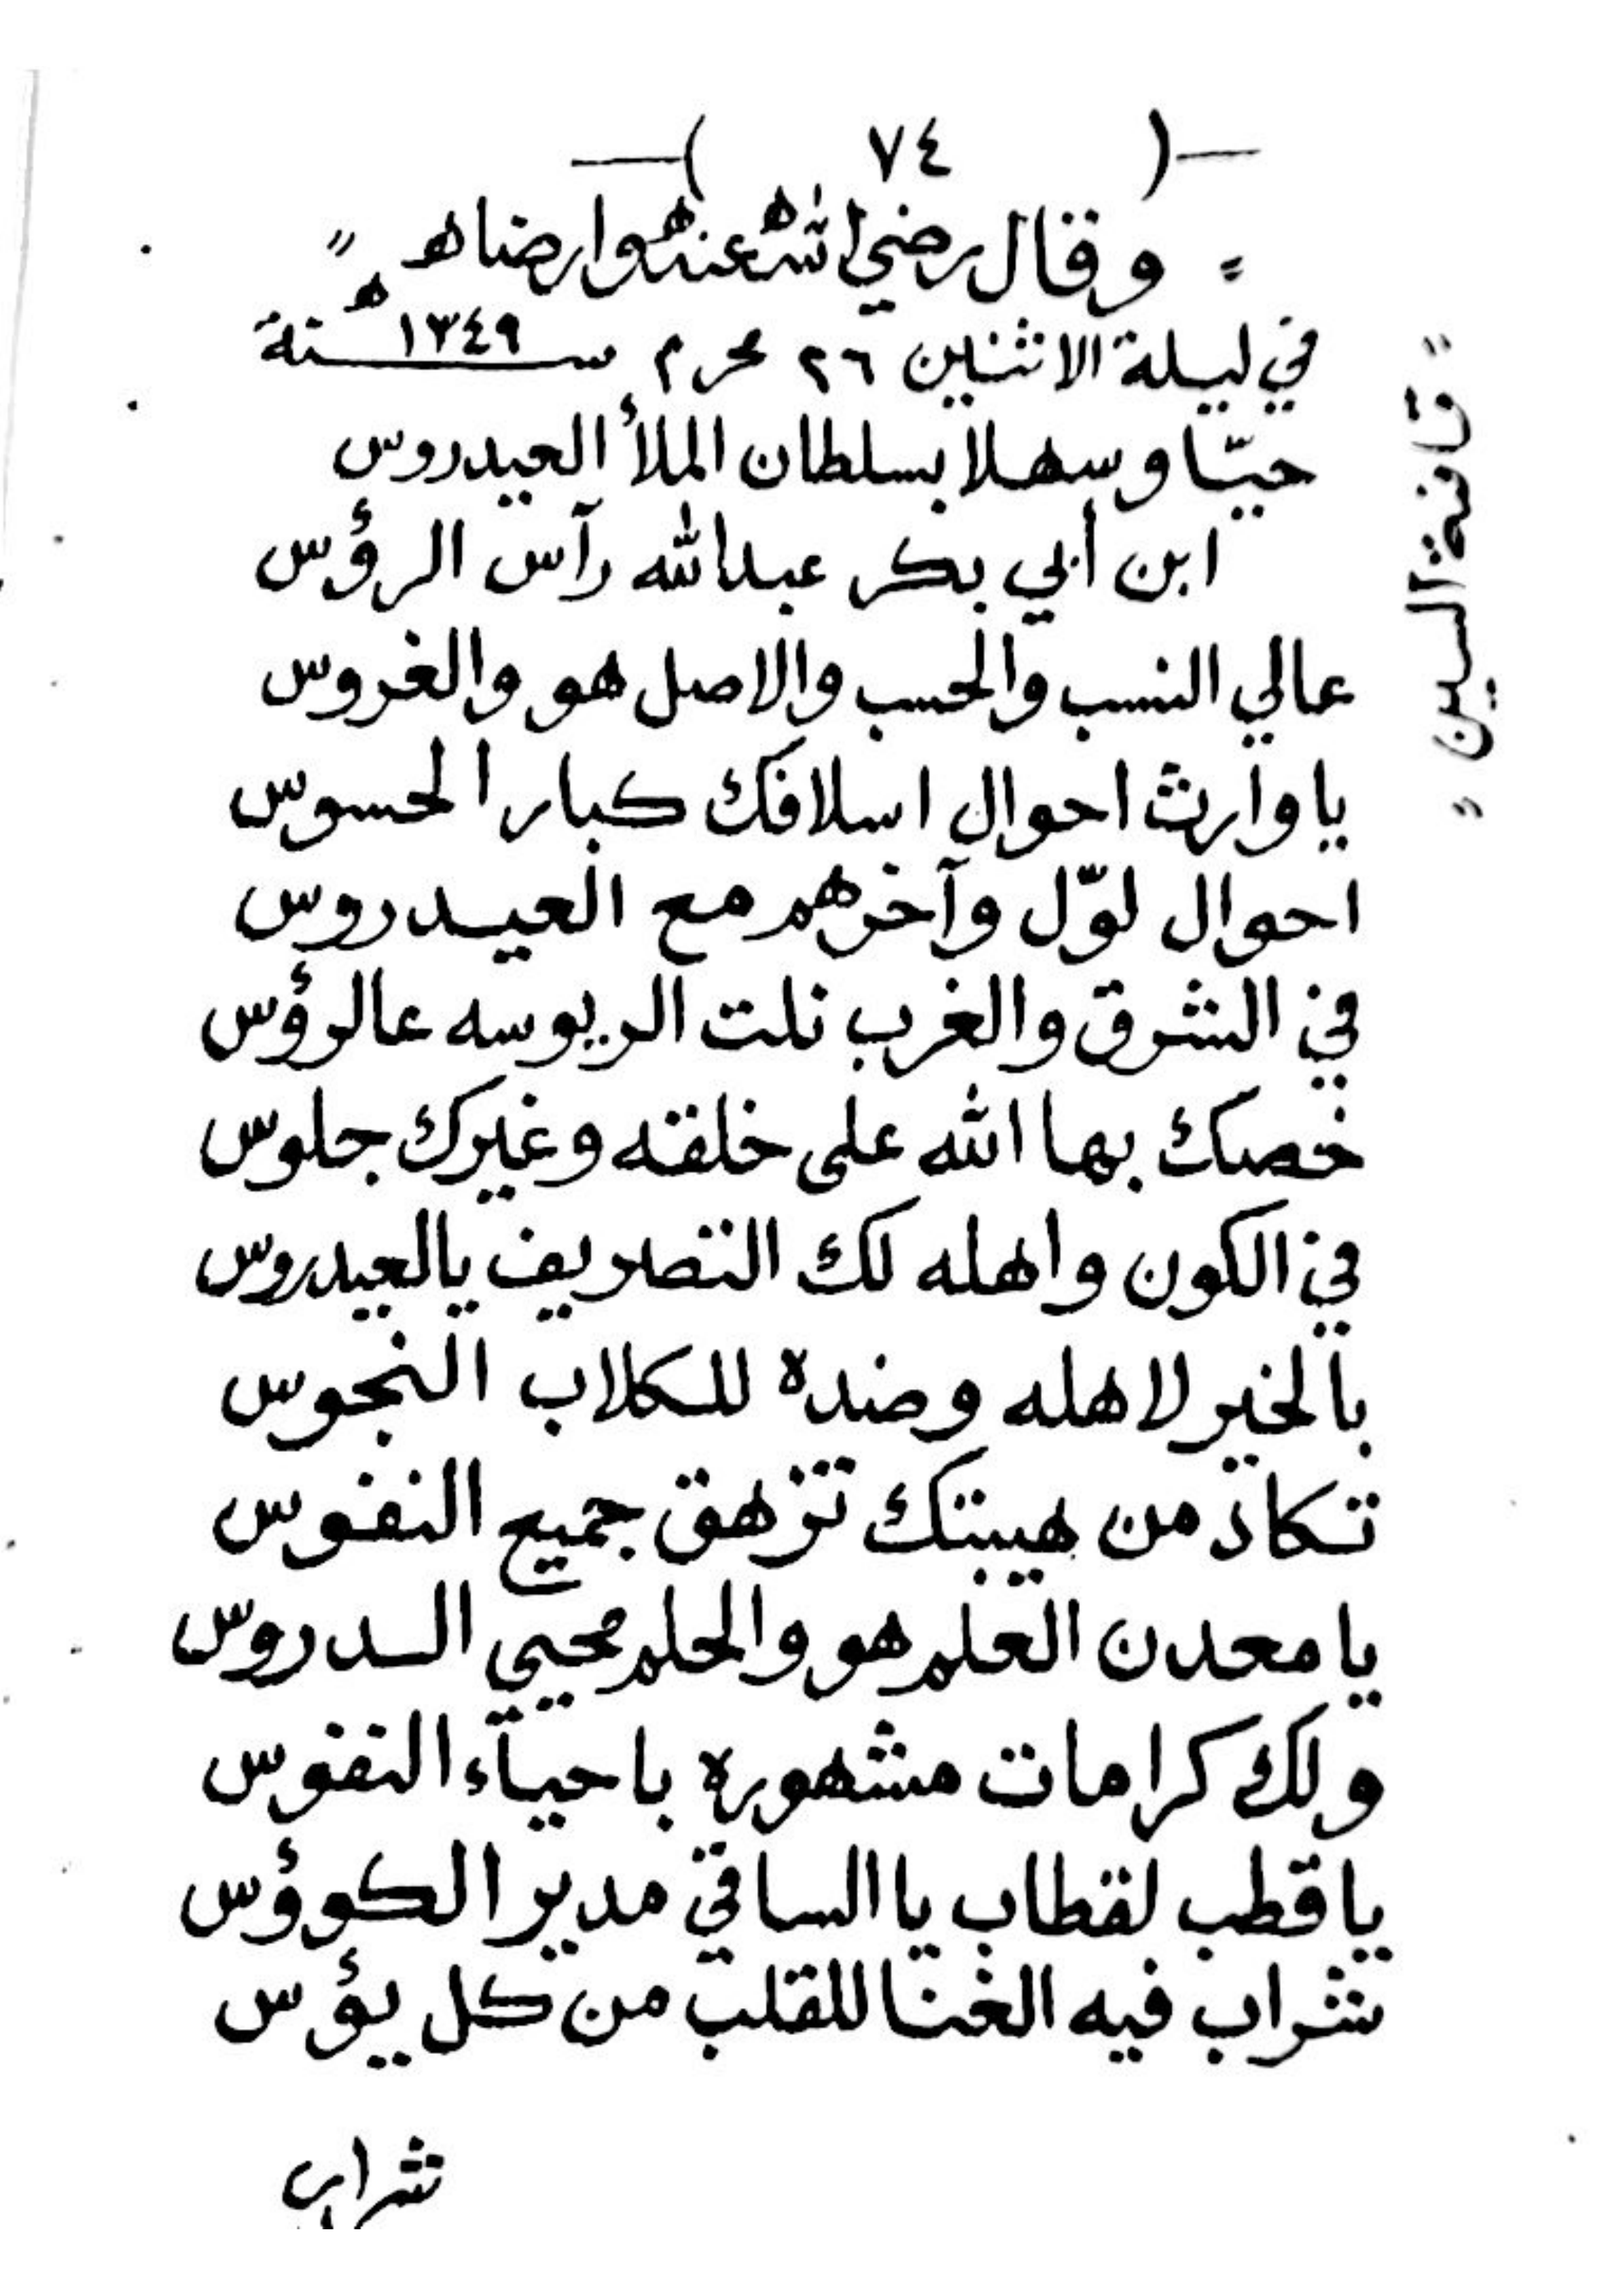 —( ٧٤ )—
" وقال رضي الله عنه وارضاه "
في ليلة الاثنين ٢٦ محرم سنة ١٣٤٩ه
" قافية السين "
حيّا وسهلا بسلطان الملأ العيدروس
ابن أبي بكر عبدالله رآس الرؤس
عالي النسب والحسب والاصل هو والغروس
يا وارث احوال اسلافك كبار الحسوس
احوال لوّل وآخرهم مع العيدروس
في الشرق والغرب نلت الريوسه عالرؤس
خصك بها الله على خلقته وغيرك جلوس
في الكون واهله لك التصريف يالعيدروس
بالخير لاهله وضده للكلاب النجوس
تكاد من هيبتك تزهق جميع النفوس
يا معدن العلم هو والحلم محيي الدروس
ولك كرامات مشهوره باحيآء النفوس
يا قطب لقطاب يا الساقي مدير الكوؤس
شراب فيه الغنا للقلب من كل يؤس
شراب